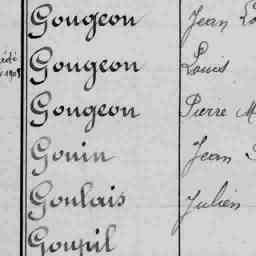 Gougeon Jean
Gougeon Louis
Gougeon Pierre M
Gouin Jean
Goulais Julien
Goupil